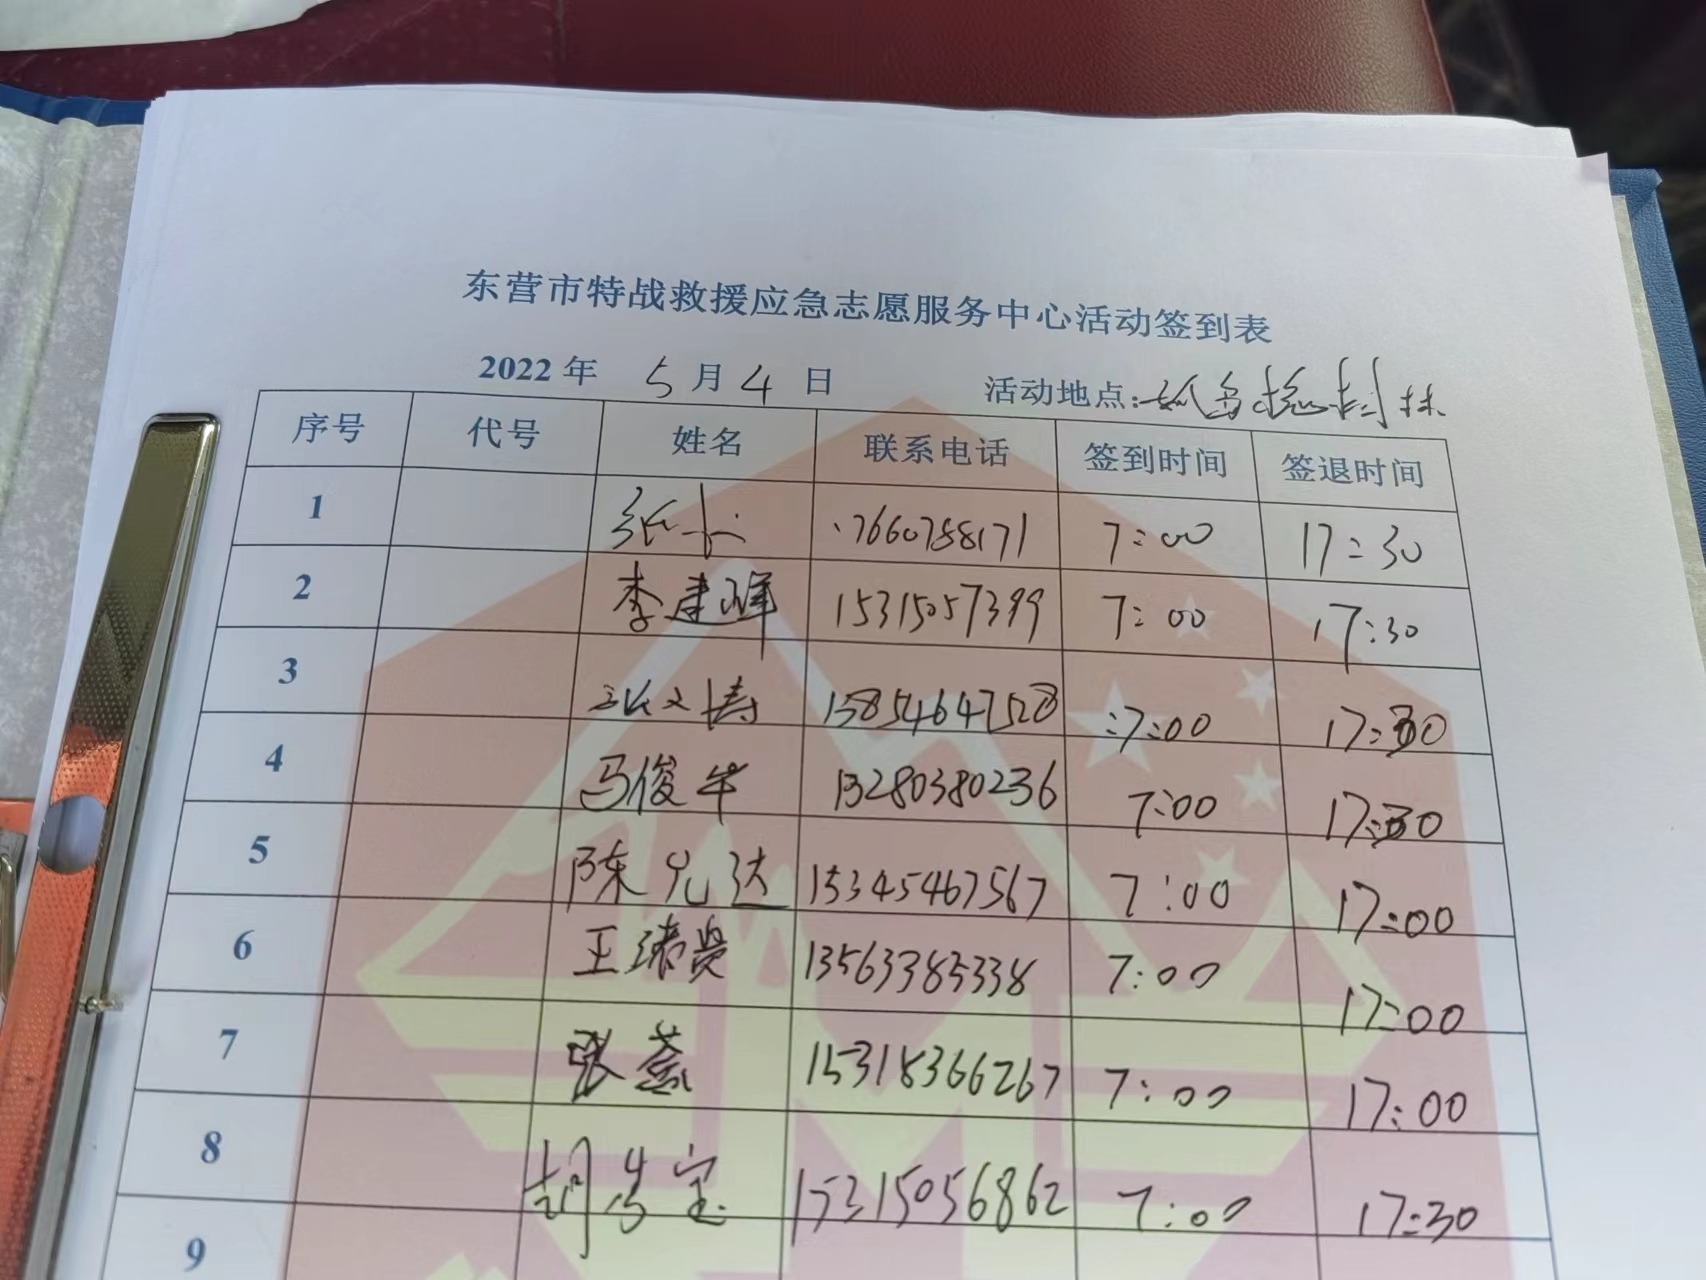 东营市特战救援应急志愿服务中心活动签到表
2022年 5月4日 活动地点:孤岛槐树林
序号 代号 姓名 联系电话 签到时间 签退时间
1 张 7660788171 7:00 17:30
2 李建峰 15315057399 7:00 17:30
3 张文涛 15854647528 :7:00 17:30
4 马俊牛 13280380236 7:00 17:30
5 陈允达 15345467567 7:00 17:00
6 王瑞贤 13563385338 7:00 17:00
7 张燕 15318366267 7:00 17:00
8 胡宝 15315056862 7:00 17:30
9